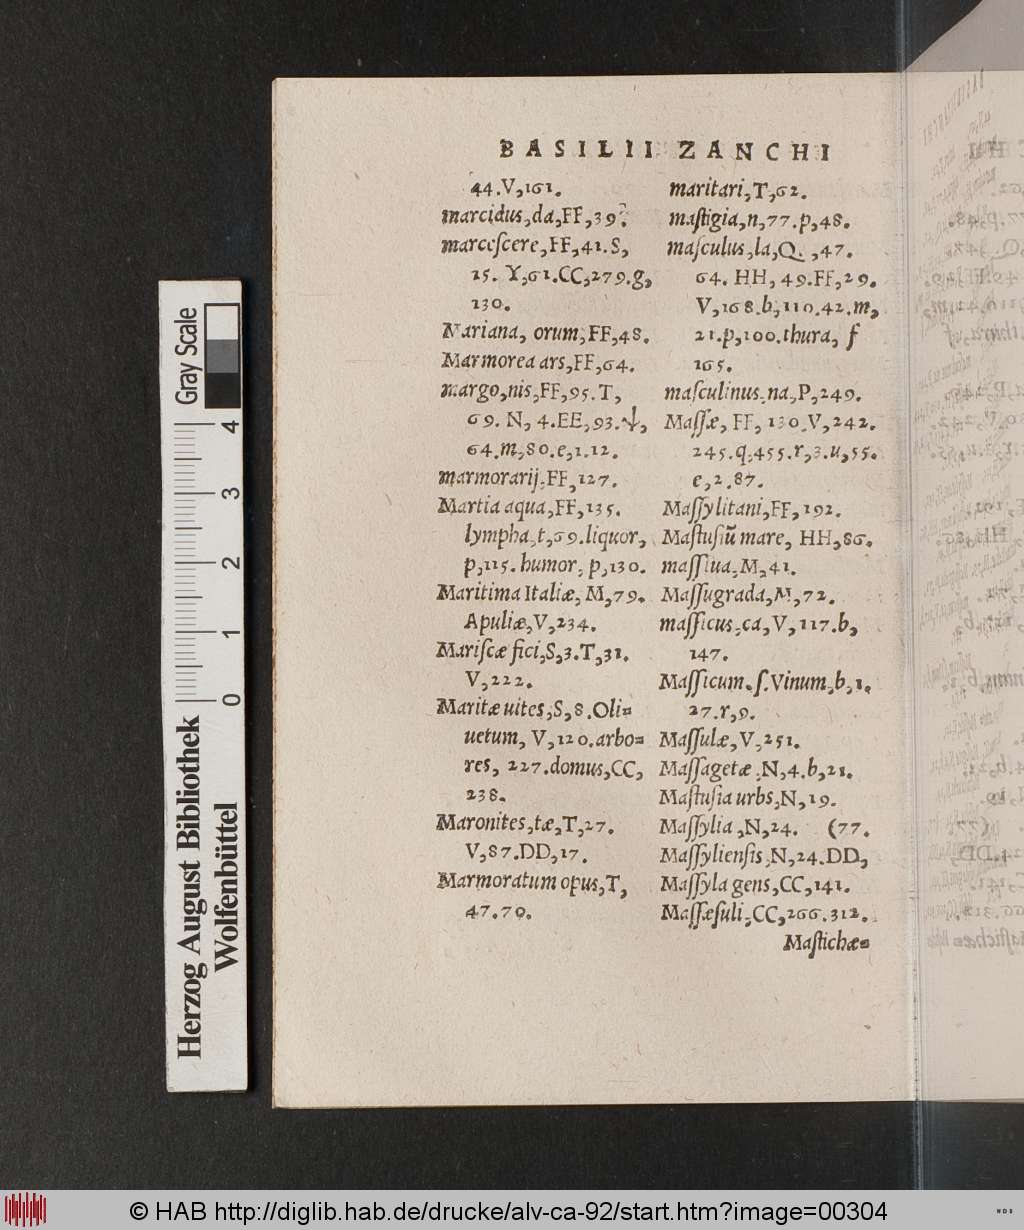 BASILII ZANCHI
44.V,161.
marcidus,da,FF,39.
marcescere,FF,41.S,
15. Y,61.CC,279.g,
130.
Mariana, orum,FF,48.
Marmorea ars,FF,64.
margo,nis,FF,95.T,
69. N, 4.EE,93.ψ,
64.m,80.e,1.12.
marmorarij,FF,127.
Martia aqua,FF,135.
lympha,t,69.liquor,
p,115.humor, p,130.
Maritima Italiæ, M,79.
Apuliæ,V,234.
Mariſcæ fici,S,3.T,31.
V,222.
Maritæ uites,S,8.Oli=
uetum, V,120.arbo=
res, 227.domus,CC,
238.
Maronites,tæ,T,27.
V,87.DD,17.
Marmoratum opus,T,
47.70.
maritari,T,62.
maſtigia,n,77.p,48.
maſculus,la,Q.,47.
64. HH, 49.FF,29.
V,168.b,110.42.m,
21.p,100.thura, f
165.
maſculinus,na,P,249.
Maſſæ, FF, 130.V,242.
245.q,455.r,3.u,55.
e,2.87.
Maſſylitani,FF,192.
Maſtuſiũ mare, HH,86.
maſſiua,M,41.
Maſſugrada,M,72.
maſſicus,ca,V,117.b,
147.
Maſſicum.ſ.Vinum,b,1.
27.r,9.
Maſſulæ,V,251.
Maſſagetæ,N,4.b,21.
Maſtuſia urbs,N,19.
Maſſylia,N,24. (77.
Maſſylienſis,N,24.DD,
Maſſyla gens,CC,141.
Maſſæſuli,CC,266.312.
Maſtichæ=
Gray Scale
4
3
2
1
0
Herzog August Bibliothek
Wolfenbüttel
© HAB http://diglib.hab.de/drucke/alv-ca-92/start.htm?image=00304